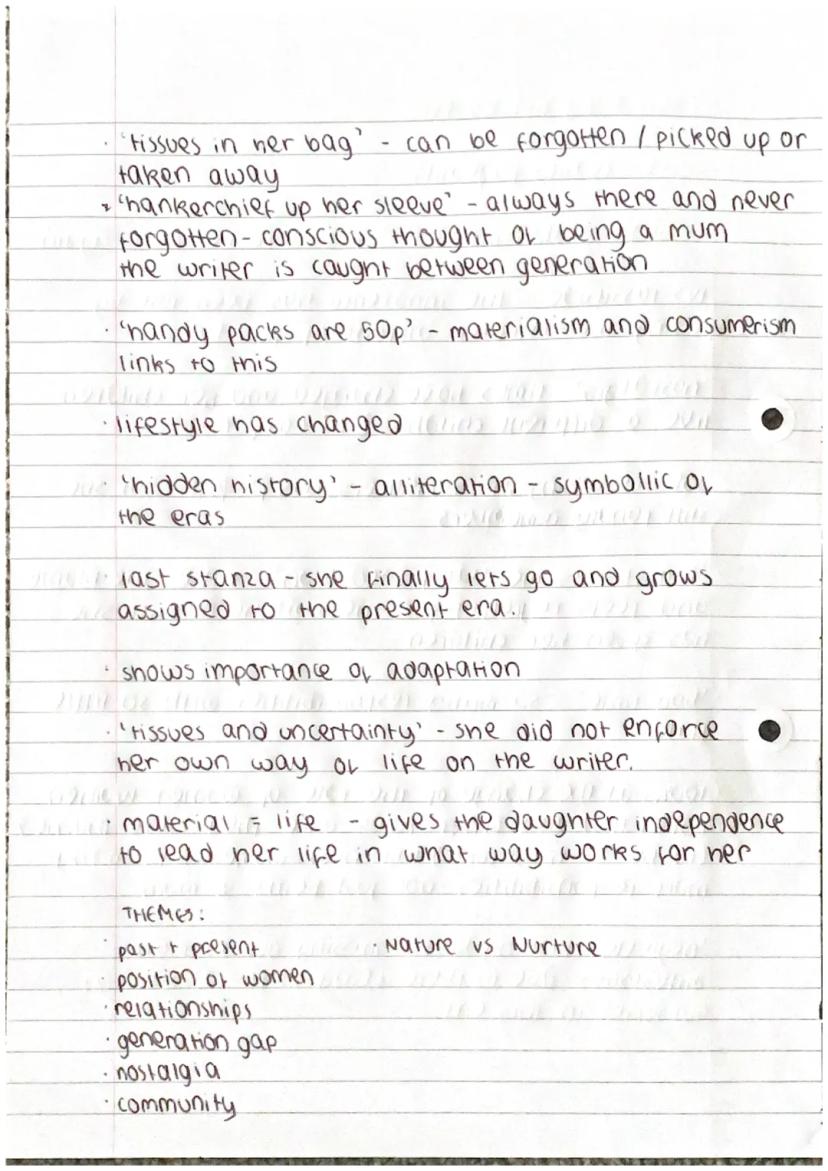 · 'tissues in her bag' - can be forgotten / picked up or
taken away
· 'hankerchief up her sleeve' - always there and never
forgotten - conscious thought of being a mum
the writer is caught between generation
· 'handy packs are 50p' - materialism and consumerism
links to this
· lifestyle has changed
· 'hidden history' - alliteration - symbollic of
the eras
· last stanza - she finally lets go and grows
assigned to the present era.
· shows importance of adaptation
· 'tissues and uncertainty' - she did not enforce
her own way of life on the writer.
· material = life - gives the daughter independence
to lead her life in what way works for her
THEMES:
· past + present · Nature vs Nurture
· position of women
· relationships
· generation gap
· nostalgia
· community